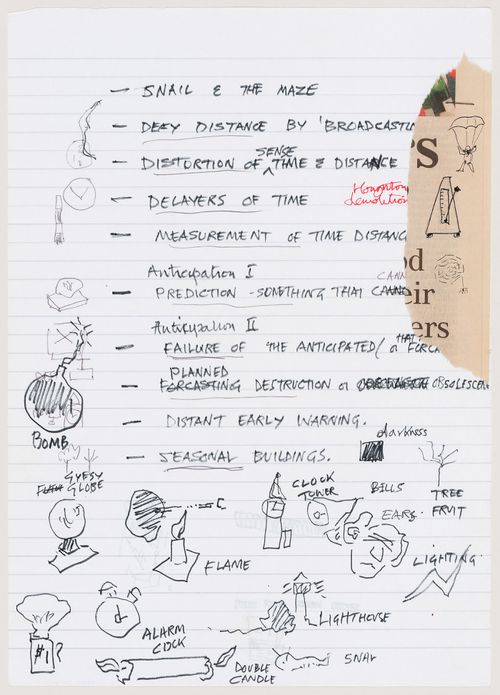 — SNAIL & THE MAZE
— DEFY DISTANCE BY 'BROADCASTIN
SENSE
— DISTORTION OF TIME & DISTANCE
— DELAYERS OF TIME
demolition
— MEASUREMENT OF TIME DISTANC
Anticipation I
CANN
— PREDICTION - SOMETHING THAT
Anticipation II
THAT
— FAILURE OF THE ANTICIPATED / or FORCA
PLANNED
— FORCASTING DESTRUCTION or OBSOLESCEN
— DISTANT EARLY WARNING.
— SEASONAL BUILDINGS.
rs
od
eir
ers
BOMB
darkness
EYES?
GLOBE
CLOCK
TOWER
BILLS
EARS.
TREE
FRUIT
FLAME
LIGHTING
#1?
ALARM
CLOCK
LIGHTHOUSE
DOUBLE
CANDLE